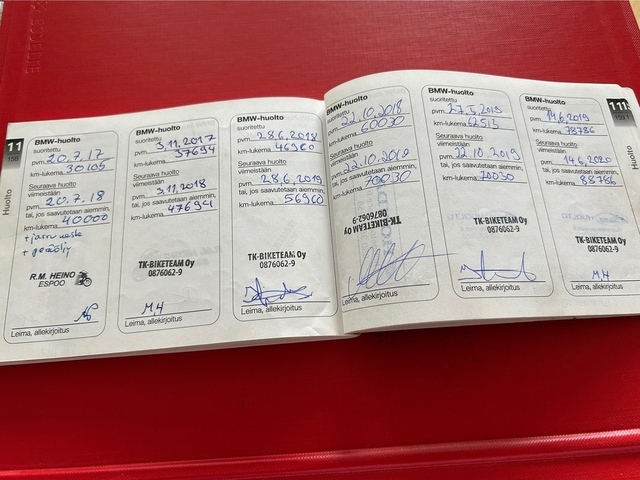 11
159
Huolto
BMW-huolto
suoritettu
pvm. 20.7.17
km-lukema 30105
Seuraava huolto
viimeistään
pvm. 20.7.18
tai, jos saavutetaan aiemmin,
km-lukema 40000
+ jarruneste
+ peräöljy
R.M. HEINO
ESPOO
Leima, allekirjoitus
BMW-huolto
suoritettu
pvm. 3.11.2017
km-lukema 37694
Seuraava huolto
viimeistään
pvm. 3.11.2018
tai, jos saavutetaan aiemmin,
km-lukema 47694
TK-BIKETEAM Oy
0876062-9
M.H
Leima, allekirjoitus
BMW-huolto
suoritettu
pvm. 28.6.2018
km-lukema 46960
Seuraava huolto
viimeistään
pvm. 28.6.2019
tai, jos saavutetaan aiemmin,
km-lukema 56960
TK-BIKETEAM Oy
0876062-9
Leima, allekirjoitus
BMW-huolto
suoritettu
pvm. 22.10.2018
km-lukema 60030
Seuraava huolto
viimeistään
pvm. 22.10.2019
tai, jos saavutetaan aiemmin,
km-lukema 70030
TK-BIKETEAM Oy
0876062-9
Leima, allekirjoitus
BMW-huolto
suoritettu
pvm. 27.5.2019
km-lukema 62515
Seuraava huolto
viimeistään
pvm. 22.10.2019
tai, jos saavutetaan aiemmin,
km-lukema 70030
TK-BIKETEAM Oy
0876062-9
Leima, allekirjoitus
BMW-huolto
suoritettu
pvm. 14.6.2019
km-lukema 78786
Seuraava huolto
viimeistään
pvm. 14.6.2020
tai, jos saavutetaan aiemmin,
km-lukema 88786
TK-BIKETEAM Oy
0876062-9
M.H
Leima, allekirjoitus
Huolto